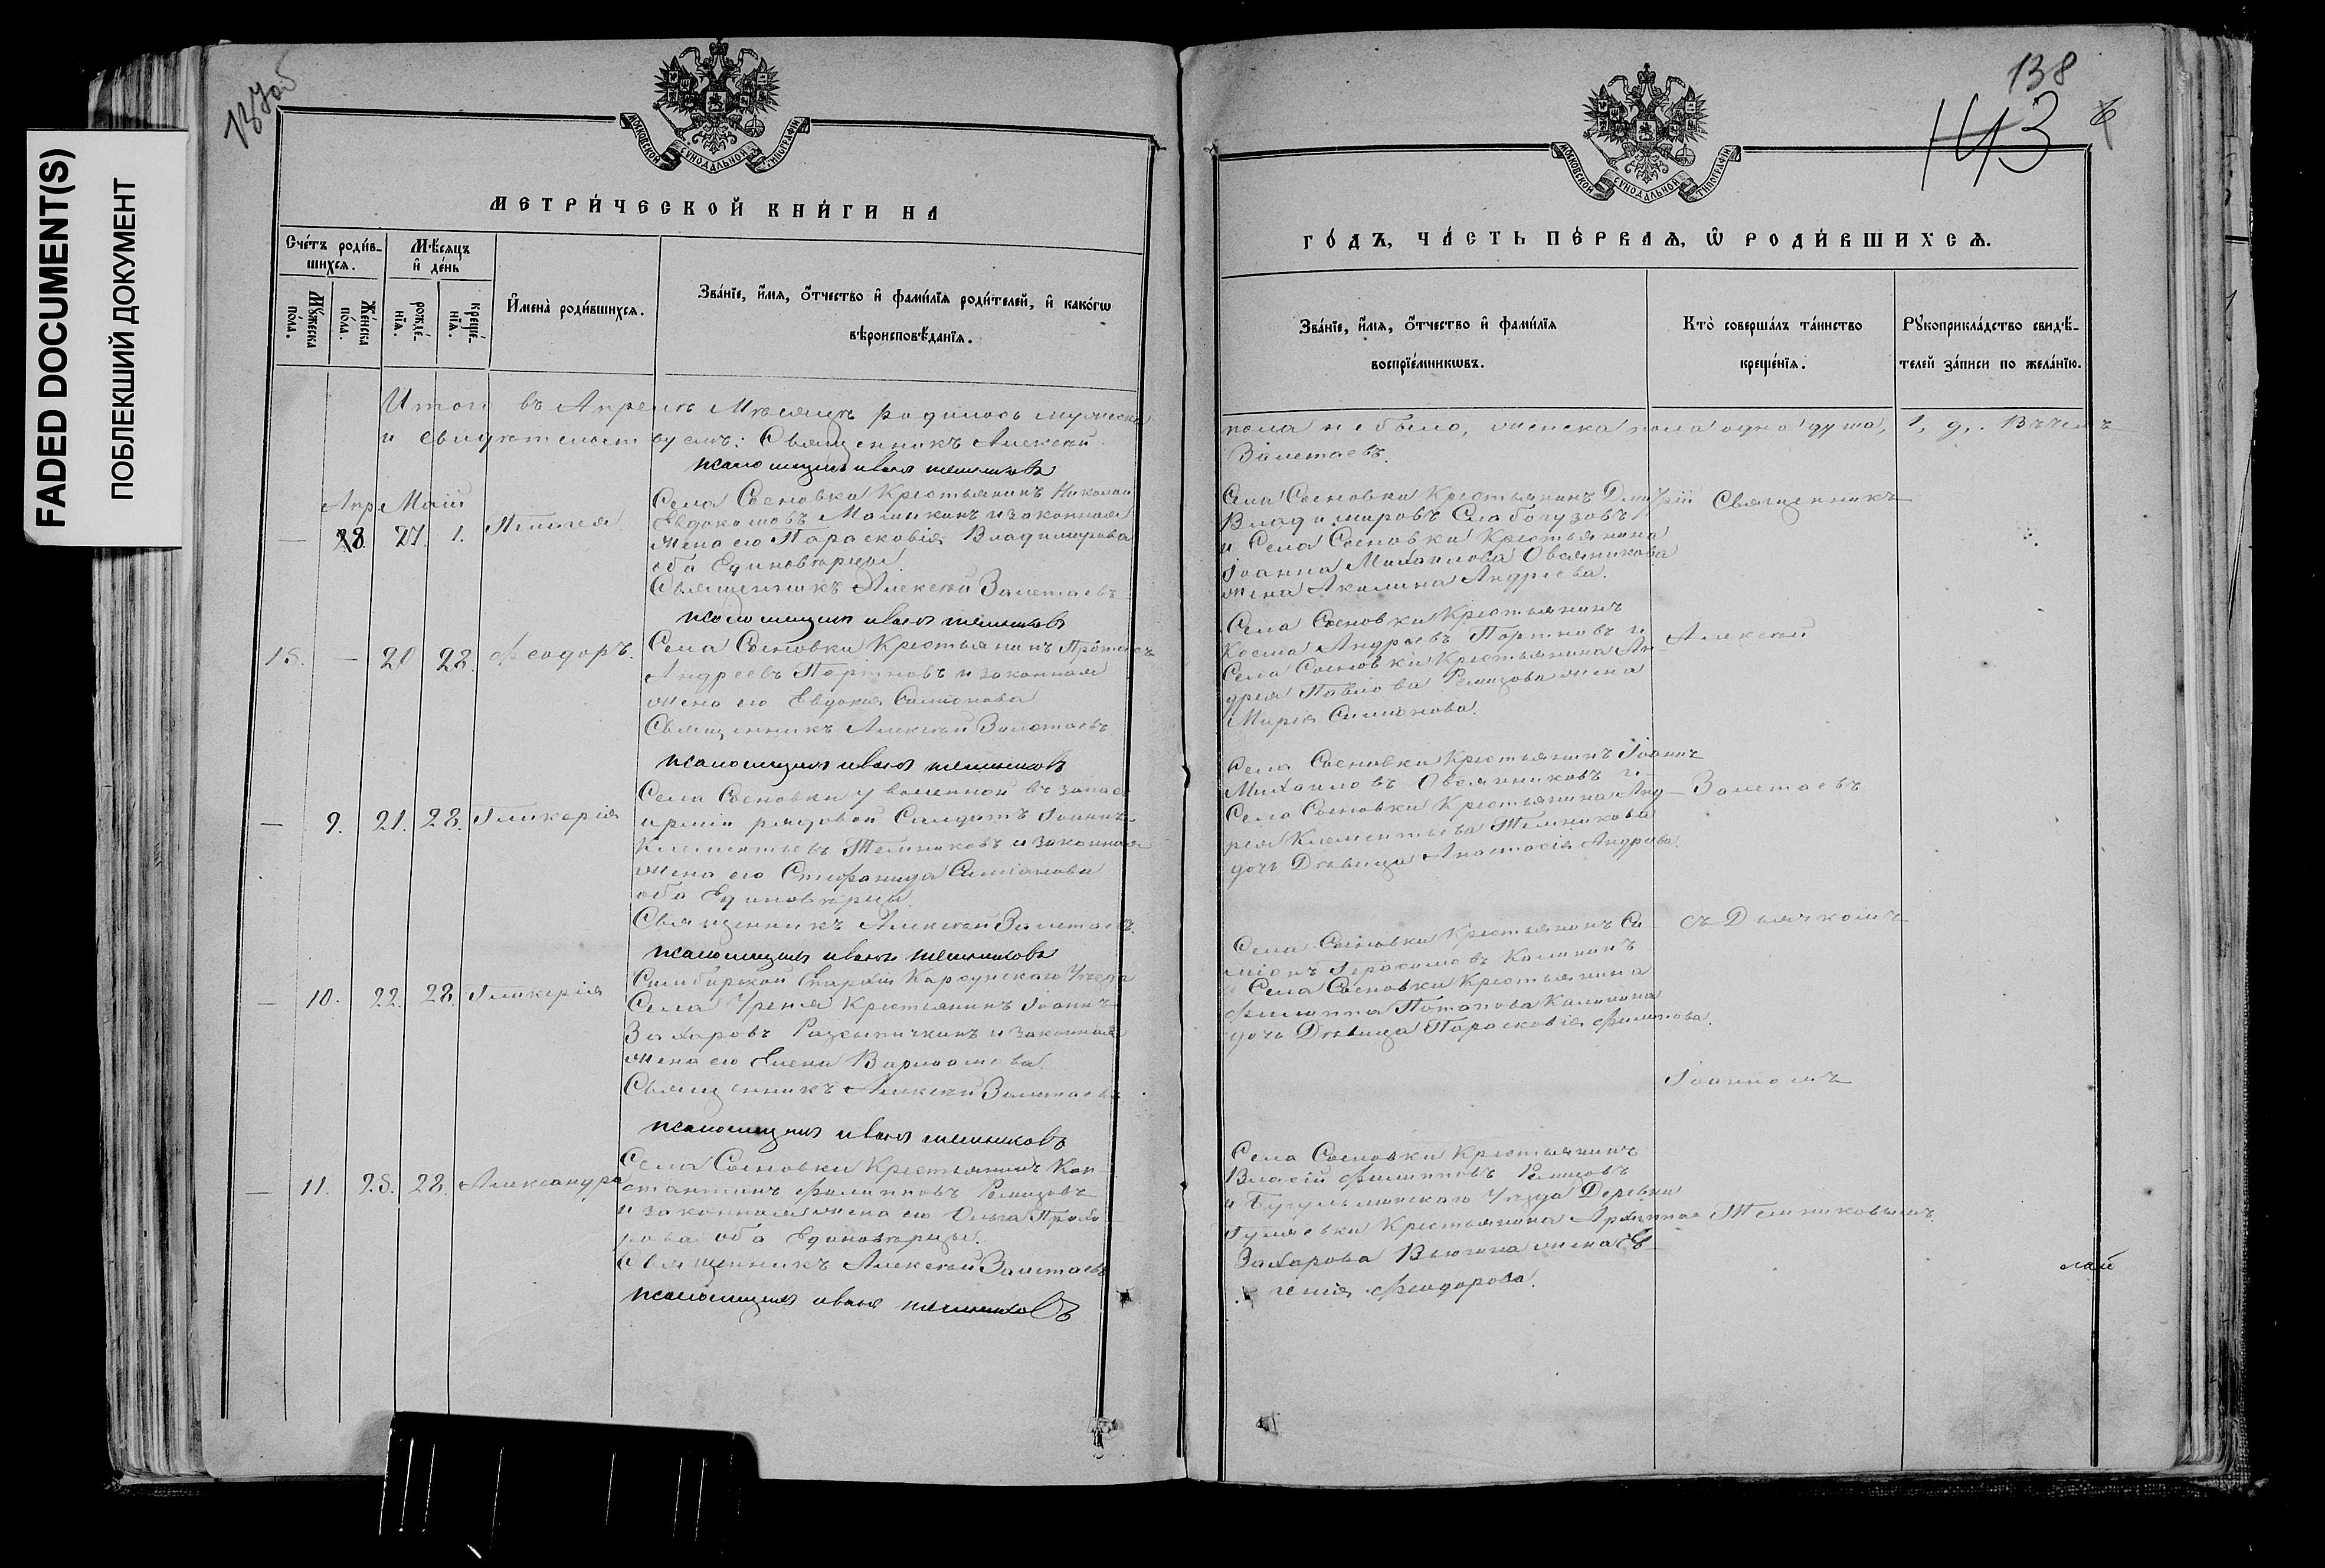 FADED DOCUMENT(S)
ПОБЛЕКШИЙ ДОКУМЕНТ
137об
МОСКОВСКОЙ СѴНОДАЛЬНОЙ ТИПОГРАФІИ
МЕТРИ́ЧЕСКОЙ КНИ́ГИ НА
Сче́тъ роди́в-
шихся.
Мѣ́сяцъ
и҆ де́нь
Мꙋ́жеска
по́ла.
Же́нска
по́ла.
рожде́-
нїя.
креще́-
нїя.
И҆мена̀ роди́вшихся.
Зва́нїе, и҆́мя, ѻ҆́тчество и҆ фами́лїя роди́телей, и҆ како́гѡ
вѣроисповѣ́данїя.
Итого въ Апрелѣ Мѣсяцѣ родилось мужеска
и свидѣтельствуемъ: Священникъ Алексѣй
псаломщикъ иванъ темниковъ
Апр. Май
— 8. 27. 1. Пелагея
Села Сосновки Крестьянинъ Николай
Евдокимовъ Малышкинъ и законная
жена его Парасковія Владимирова
оба Единовѣрцы.
Священникъ Алексѣй Залетаевъ
псаломщикъ иванъ темниковъ
15. — 20 28. Феодоръ.
Села Сосновки Крестьянинъ
Андреевъ Портновъ и законная
жена его Евдокия Симионова
Священникъ Алексѣй Залетаевъ
псаломщикъ иванъ темниковъ
— 9. 21. 28. Гликерія
Села Сосновки уволенной въ запас
арміи рядовой Солдатъ Іоаннъ
Климентьевъ Темниковъ и законная
жена его Стефанида Симіонова
оба Единовѣрцы.
Священникъ Алексѣй Залетаевъ.
псаломщикъ иванъ темниковъ
— 10. 22. 28. Гликерія
Симбирской Епархіи Карсунскаго Уѣзда
Села Уреня Крестьянинъ Іоаннъ
Захаровъ и законная
жена его Елена Варлаамова.
Священникъ Алексѣй Залетаевъ
псаломщикъ иванъ темниковъ
— 11. 25. 28. Александра
Села Сосновки Крестьянинъ Кон-
стантинъ Филипповъ Ремизовъ
и законная жена его Ольга Прохо-
рова оба Единовѣрцы.
Священникъ Алексѣй Залетаевъ
псаломщикъ иванъ темниковъ
138
143
МОСКОВСКОЙ СѴНОДАЛЬНОЙ ТИПОГРАФІИ
ГО́ДЪ, ЧА́СТЬ ПЕ́РВАЯ, Ѡ҆ РОДИ́ВШИХСЯ.
Зва́нїе, и҆́мя, ѻ҆́тчество и҆ фами́лїя
воспрїе́мникѡвъ.
Кто̀ соверша́лъ та́инство
креще́нїя.
Рꙋкоприкла́дство свидѣ́-
телей за́писи по жела́нїю.
пола не было, женска пола одна душа, 1, д,.
Залетаевъ.
Села Сосновки Крестьянинъ Димитрій
Владимировъ Слабогузовъ
и Села Сосновки Крестьянина
Іоанна Михаилова Овсяникова
жена Акилина Андреева.
Села Сосновки Крестьянинъ
Косма Андреевъ Портновъ и
Села Сосновки Крестьянина Ан-
дрея Павлова Ремизова жена
Марія Симионова.
Села Сосновки Крестьянинъ Іоаннъ
Михаиловъ Овсянниковъ и
Села Сосновки Крестьянина Анд-
рея Климентьева Темникова
дочь Дѣвица Анастасія Андреева.
Села Сосновки Крестьянинъ Си-
міонъ Герасимовъ Калининъ
и Села Сосновки Крестьянина
Филиппа Потапова Калинина
дочь Дѣвица Парасковія Филипова.
Села Сосновки Крестьянинъ
Власій Филипповъ Ремизовъ
и Бугульминскаго Уѣзда Деревни
Крестьянина Архиппа
Захарова Вьюгина жена Ев-
генія Феодорова.
Священникъ
Алексѣй
Залетаевъ
съ Дьячкомъ
Іоанномъ
Темниковымъ.